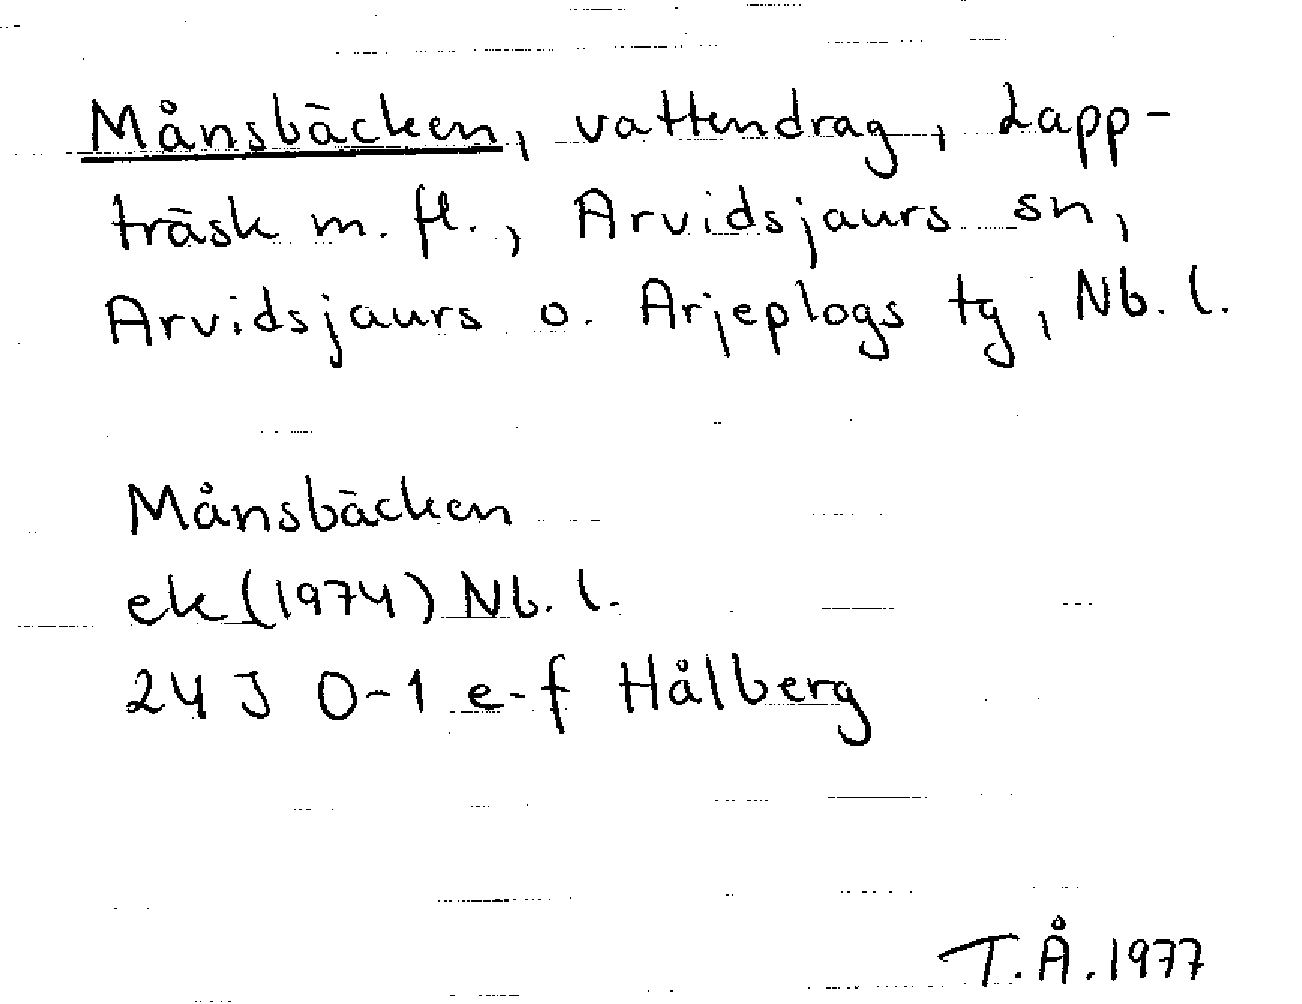 Månsbäcken, vattendrag, Lapp-
träsk m. fl., Arvidsjaurs sn,
Arvidsjaurs o. Arjeplogs tg, Nb. l.
Månsbäcken
ek (1974) Nb. l.
24 J 0-1 e-f Hålberg
T.Å. 1977